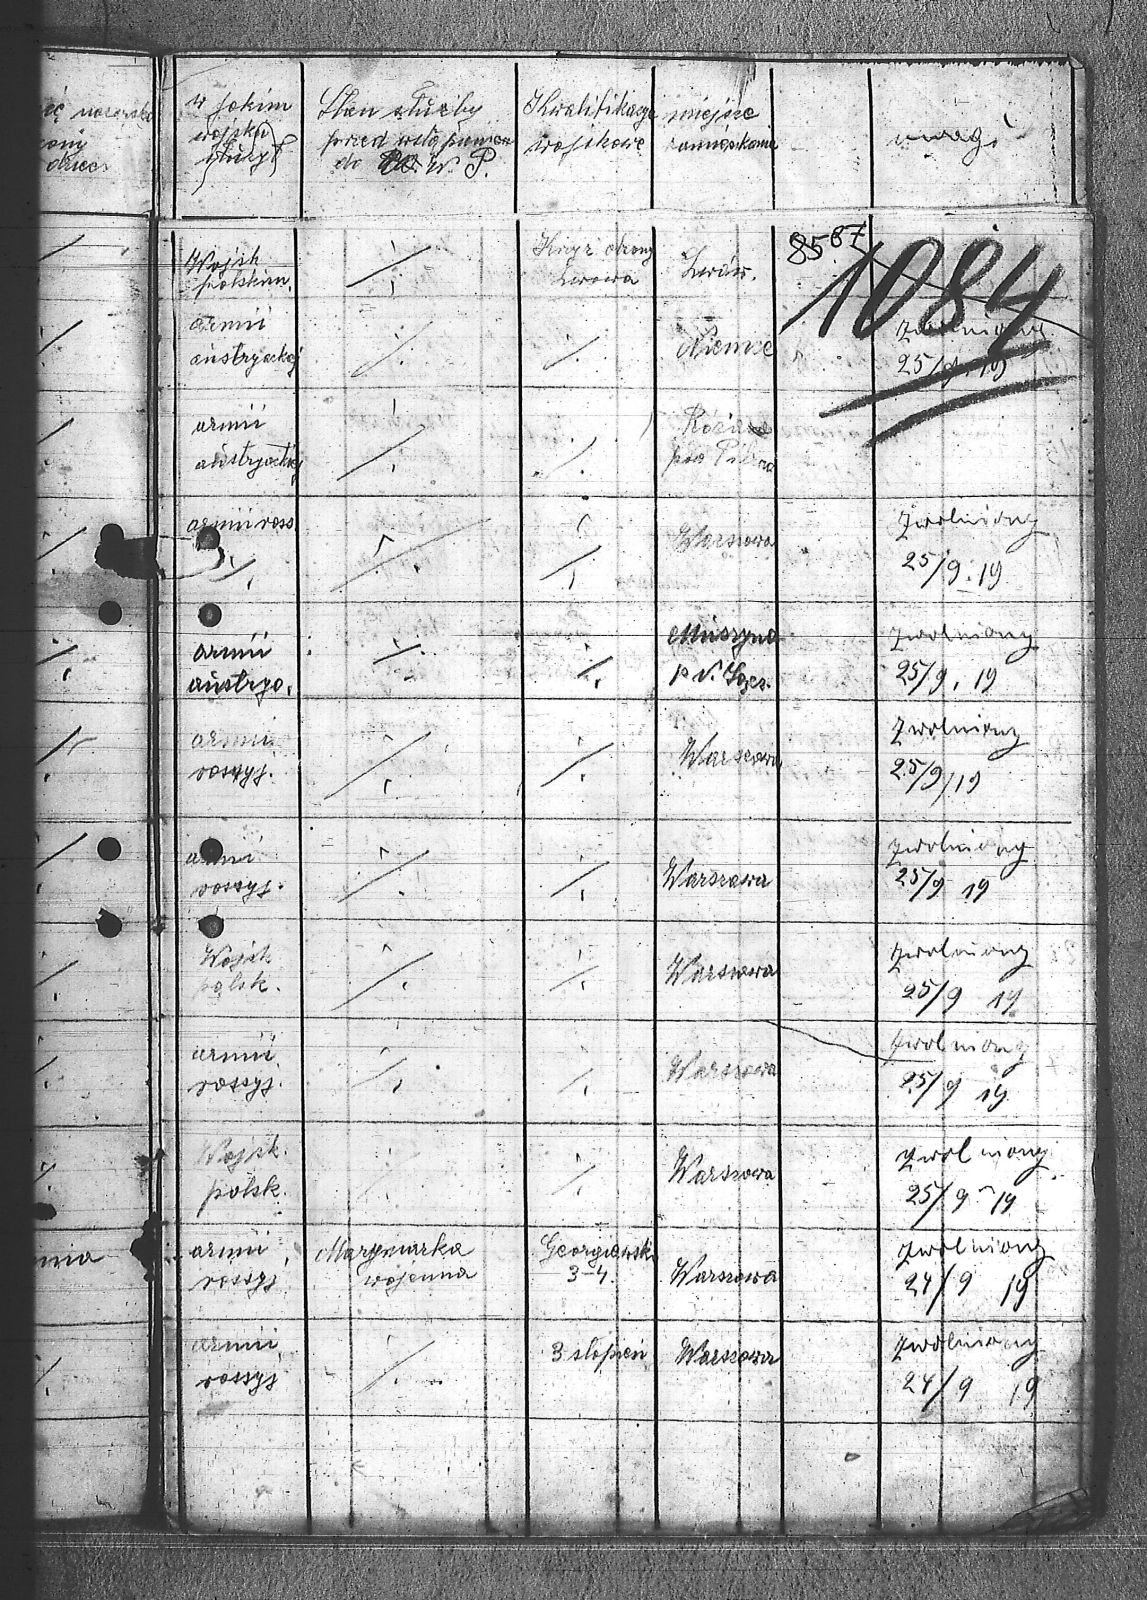 w jakim
wojsku
służył
Stan służby
przed wstąpieniem
do W. P.
Kwalifikacje
wojskowe
miejsce
zamieszkania
uwagi
dziec.
8587
1084
Wojsk
polskim.
Krzyż obrony
Lwowa
Lwów.
armii
austryackiej
Niemce
zwolniony
25/9. 19
armii
austryackiej
pod
armii ross.
Warszawa
zwolniony
25/9. 19
armii
austrya.
Muszyna
p. N. Sącz.
zwolniony
25/9. 19
armii
rossyj.
Warszawa
zwolniony
25/9/19
armii
rossyj.
Warszawa
zwolniony
25/9 19
Wojsk
polsk.
Warszawa
zwolniony
25/9 19
armii
rossyj.
Warszawa
zwolniony
25/9 19
Wojsk.
polsk.
Warszawa
zwolniony
25/9 - 19
armii
rossyj
Marynarka
wojenna
Georgiewski
3-4.
Warszawa
zwolniony
24/9 19
armii
rossyj
3 stopień
Warszawa
zwolniony
24/9 19